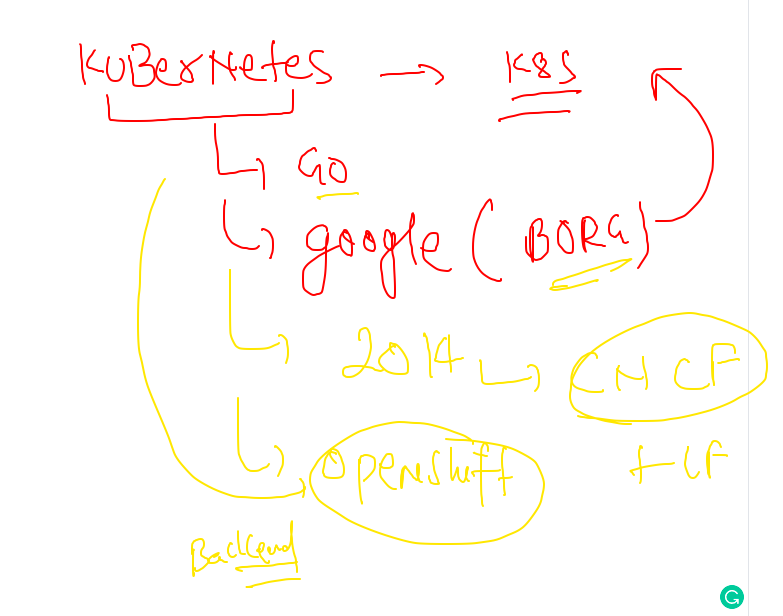 KUBerNetes → K8S
GO
google (BORG)
2014 CNCF
Openshift
Backend